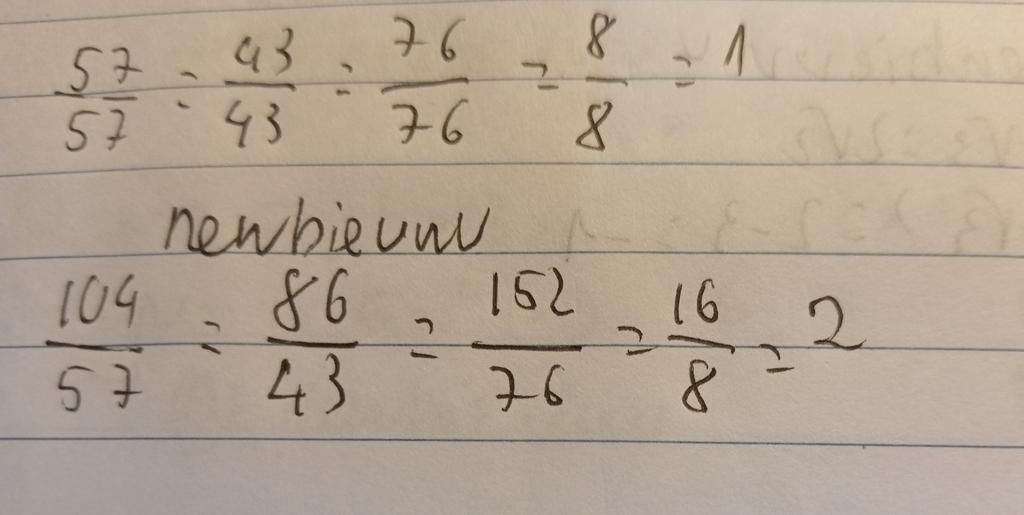 57/57 = 43/43 = 76/76 = 8/8 = 1
newbieuwu
104/57 = 86/43 = 152/76 = 16/8 = 2